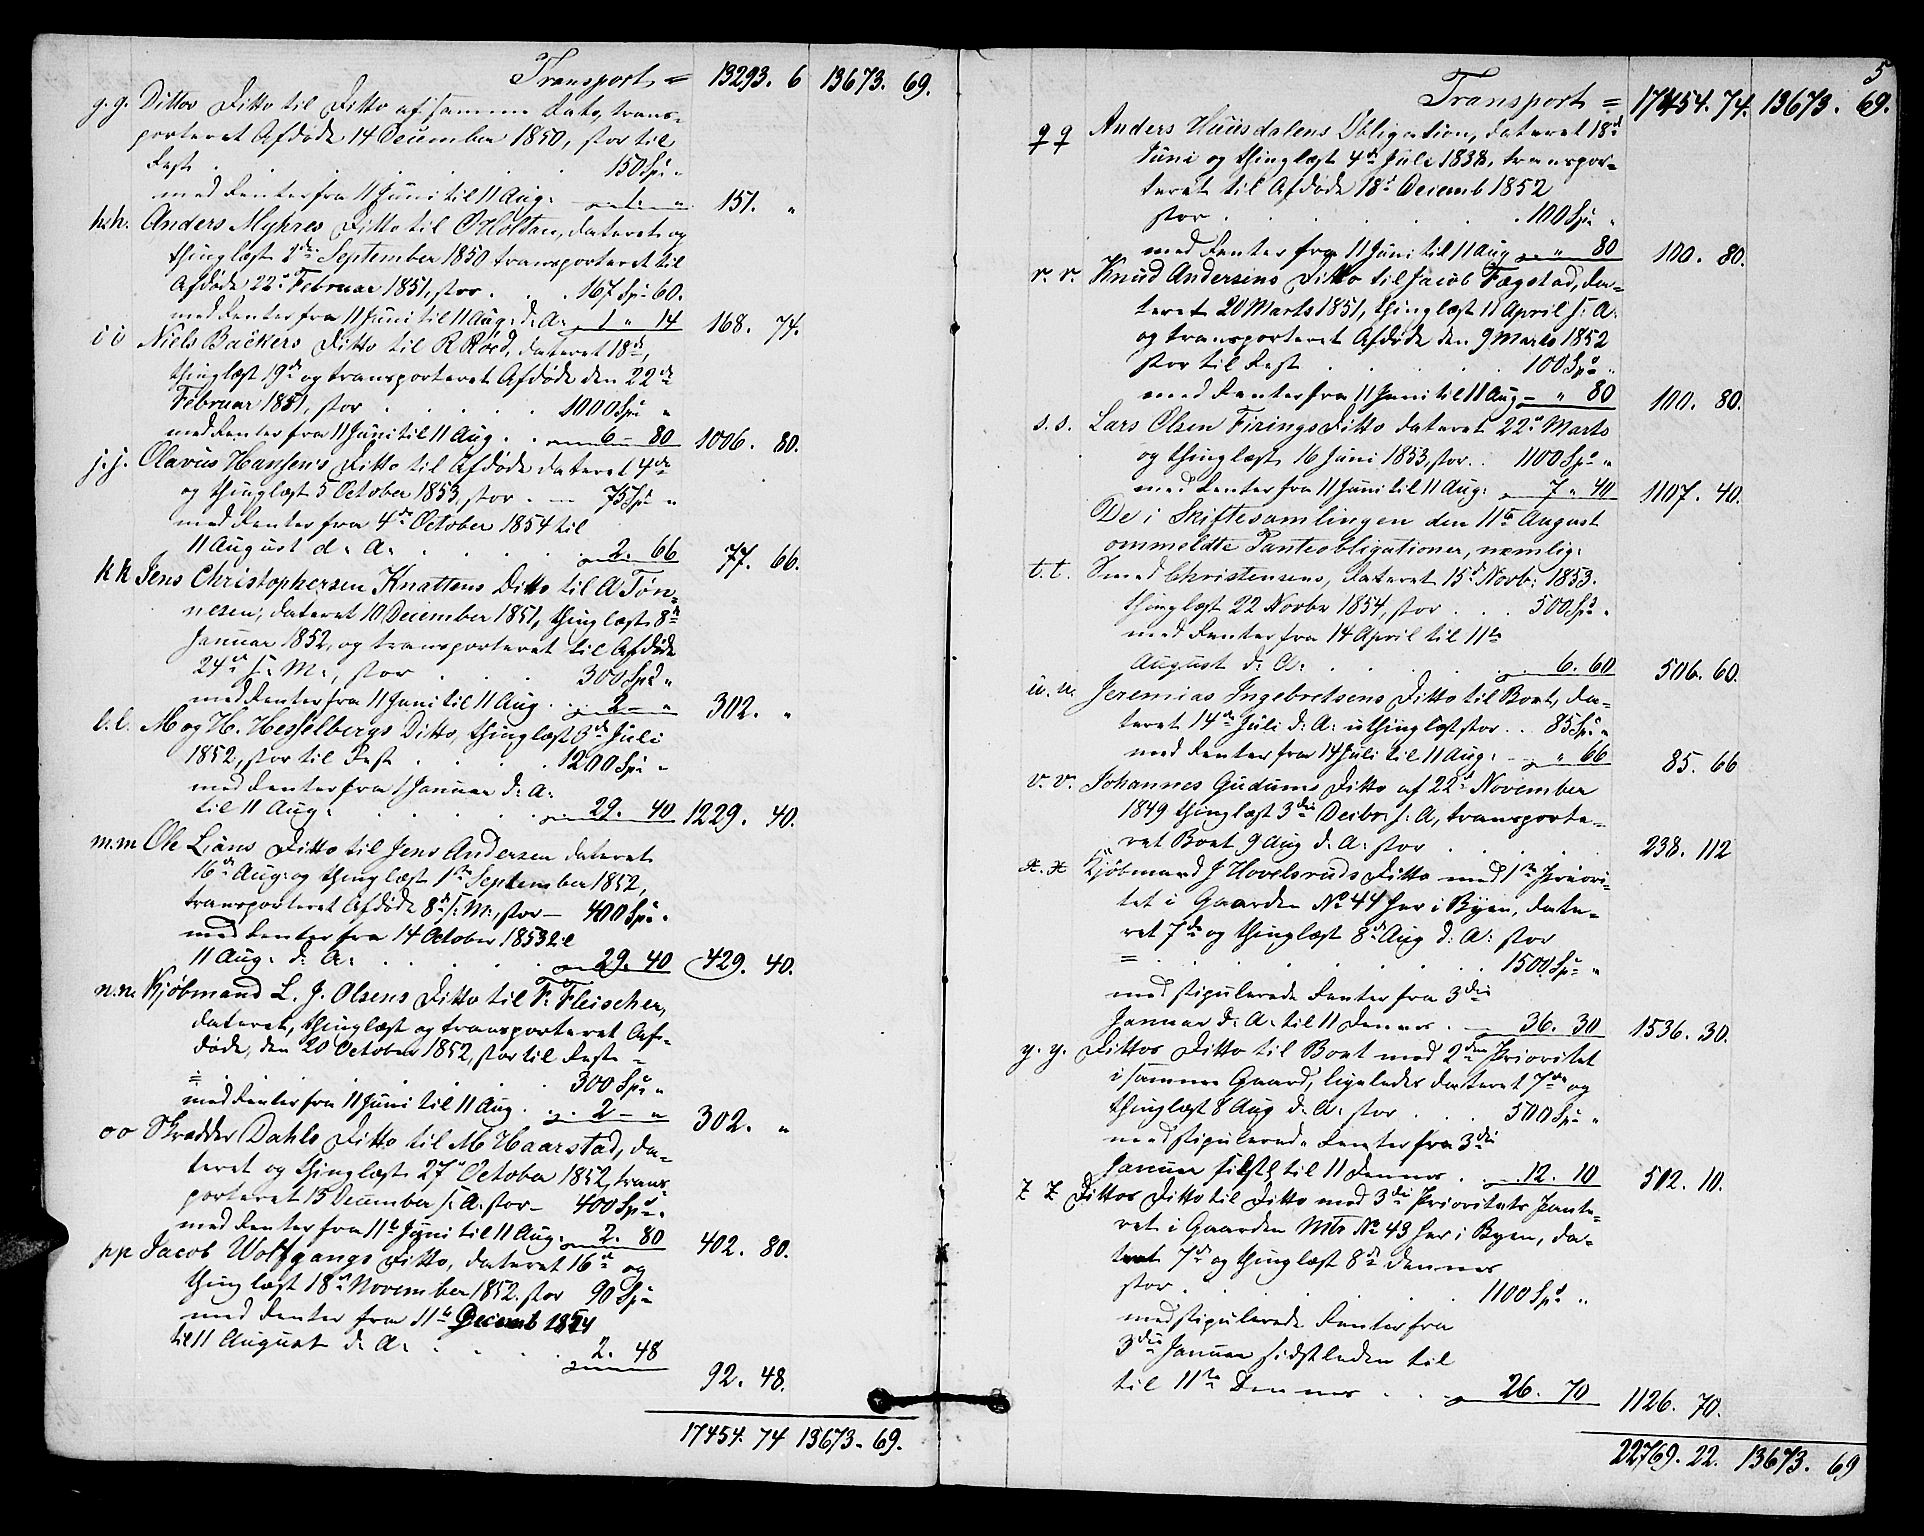 Transport = 13293. 6 13673. 69.
g. g. Dittos Ditto til Ditto af samme Dato, trans-
porteret Afdøde 14 December 1850, stor til
Rest . . . . . . 150 Spd. "
med Renter fra 11 Juni til 11 Aug. 1. " 151. "
h.h. Anders Myhres Ditto til O Holtan, dateret og
thinglæst 2de September 1850 transporteret til
Afdøde 22d Februar 1851, stor . . . 167 Spd 60.
med Renter fra 11 Juni til 11 Aug. d: A: 1 " 14 168. 74.
i i Niels Backers Ditto til R Roed, dateret 18d,
thinglæst 19de og transporteret Afdøde den 22de
Februar 1851, stor . . . . . 1000 Spd "
med Renter fra 11 Juni til 11 Aug. . . 6 - 80 1006. 80.
j. j. Olavus Hansens Ditto til Afdøde dateret 4de
og thinglæst 5 October 1853, stor . — 75 Spd "
med Renter fra 4de October 1854 til
11 August d: A: . . . . 2. 66 77. 66.
k k Jens Christophersen Knattens Ditto til A Tøn-
nesen, dateret 10 December 1851, thinglæst 8de
Januar 1852, og transporteret til Afdøde
24de s: M:, stor . . . . 300 Spd "
med Renter fra 11 Juni til 11 Aug . . 2 - " 302. "
l. l. M og H. Hesselbergs Ditto, thinglæst 3de Juli
1852, stor til Rest . . . . 1200 Spd "
med Renter fra 1 Januar d: A:
til 11 Aug. . . . . . 29. 40 1229. 40.
m. m Ole Liøns Ditto til Jens Andersen dateret
16de Aug: og thinglæst 1ste September 1852,
transporteret Afdøde 8de s: M:, stor — 400 Spd .
med Renter fra 14 October 1853 til
11 Aug. d: A: . . . . . 29. 40 429. 40.
n. n. Kjøbmand L. J. Olsens Ditto til F. Fleischer,
dateret, thinglæst og transporteret Af-
døde, den 20 October 1852, stor til Rest -
= . . . . . . 300 Spd "
med Renter fra 11 Juni til 11 Aug. . . 2 - " 302. "
o o Skrædder Dahls Ditto til M Haarstad, da-
teret og thinglæst 27de October 1852, trans-
porteret 13 December s: A: stor — 400 Spd.
med Renter fra 11te Juni til 11 Aug: 2. 80 402. 80.
p p Jacob Wolfgangs Ditto, dateret 16de og
thinglæst 18de November 1852. stor 90 Spd
med Renter fra 11te Decemb 1854
til 11 August d: A: . . . . 2. 48
92. 48.
17454. 74 13673. 69.
5
Transport = 17454. 74. 13673. 69.
q q Anders Huusdalens Obligation, dateret 18d
Juni og thinglæst 4de Juli 1838, transpor-
teret til Afdøde 18d Decemb 1852
stor . . . . . . . 100 Spd "
med Renter fra 11 Juni til 11 Aug " 80 100. 80.
r. r. Knud Andersens Ditto til Jacob Fægstad, da-
teret 20 Marts 1851, thinglæst 11 April s: A:
og transporteret Afdøde den 9 Marts 1852
stor til Rest . . . . . 100 Spd "
med Renter fra 11 Juni til 11 Aug — " 80 100. 80.
s. s. Lars Olsen Firings Ditto dateret 22d Marts
og thinglæst 16 Juni 1853, stor . . 1100 Spd "
med Renter fra 11 Juni til 11 Aug: 7 " 40 1107. 40.
De i Skiftesamlingen den 11te August
ommeldte Panteobligationer, nemlig:
t. t. Smed Christensens, dateret 15d Novb: 1853.
thinglæst 22 Novbr 1854, stor . . . 500 Spd .
med Renter fra 14 April til 11te
August d: A: . . . . . 6. 60 506. 60.
u. u. Jeremias Ingebretsens Ditto til Boet, da-
teret 14de Juli d: A: uthinglæst stor . . 85 Spd "
med Renter fra 14 Juli til 11 Aug: — " 66 85. 66
v. v. Johannes Gudums Ditto af 22d November
1849 thinglæst 3die Decbr: s: A, transporte-
ret Boet 9 Aug d: A: stor . . . . 238. 112
x. x Kjøbmand J Hovelsruds Ditto med 1ste Priori-
tet i Gaarden No 44 her i Byen, date-
ret 7de og thinglæst 8de Aug d: A: stor
= . . . . . . . 1500 Spd "
med stipulerede Renter fra 3die
Januar d: A: til 11 Dennes . — 36. 30 1536. 30.
y. y. Dittos Ditto til Boet med 2den Prioritet
i samme Gaard, ligeledes dateret 7de og
thinglæst 8 Aug d: A: stor . . . 500 Spd "
med stipulerede Renter fra 3die
Januar sidstl til 11 Dennes . . 12. 10 512. 10.
z z Dittos Ditto til Ditto med 3die Prioritets Pante-
ret i Gaarden Mtr No 43 her i Byen, da-
teret 7de og thinglæst 8de dennes
stor . . . . . . 1100 Spd "
med stipulerede Renter fra
3die Januar sidstleden til
til 11te Dennes . . . 26. 70 1126. 70.
22769. 22. 13673. 69